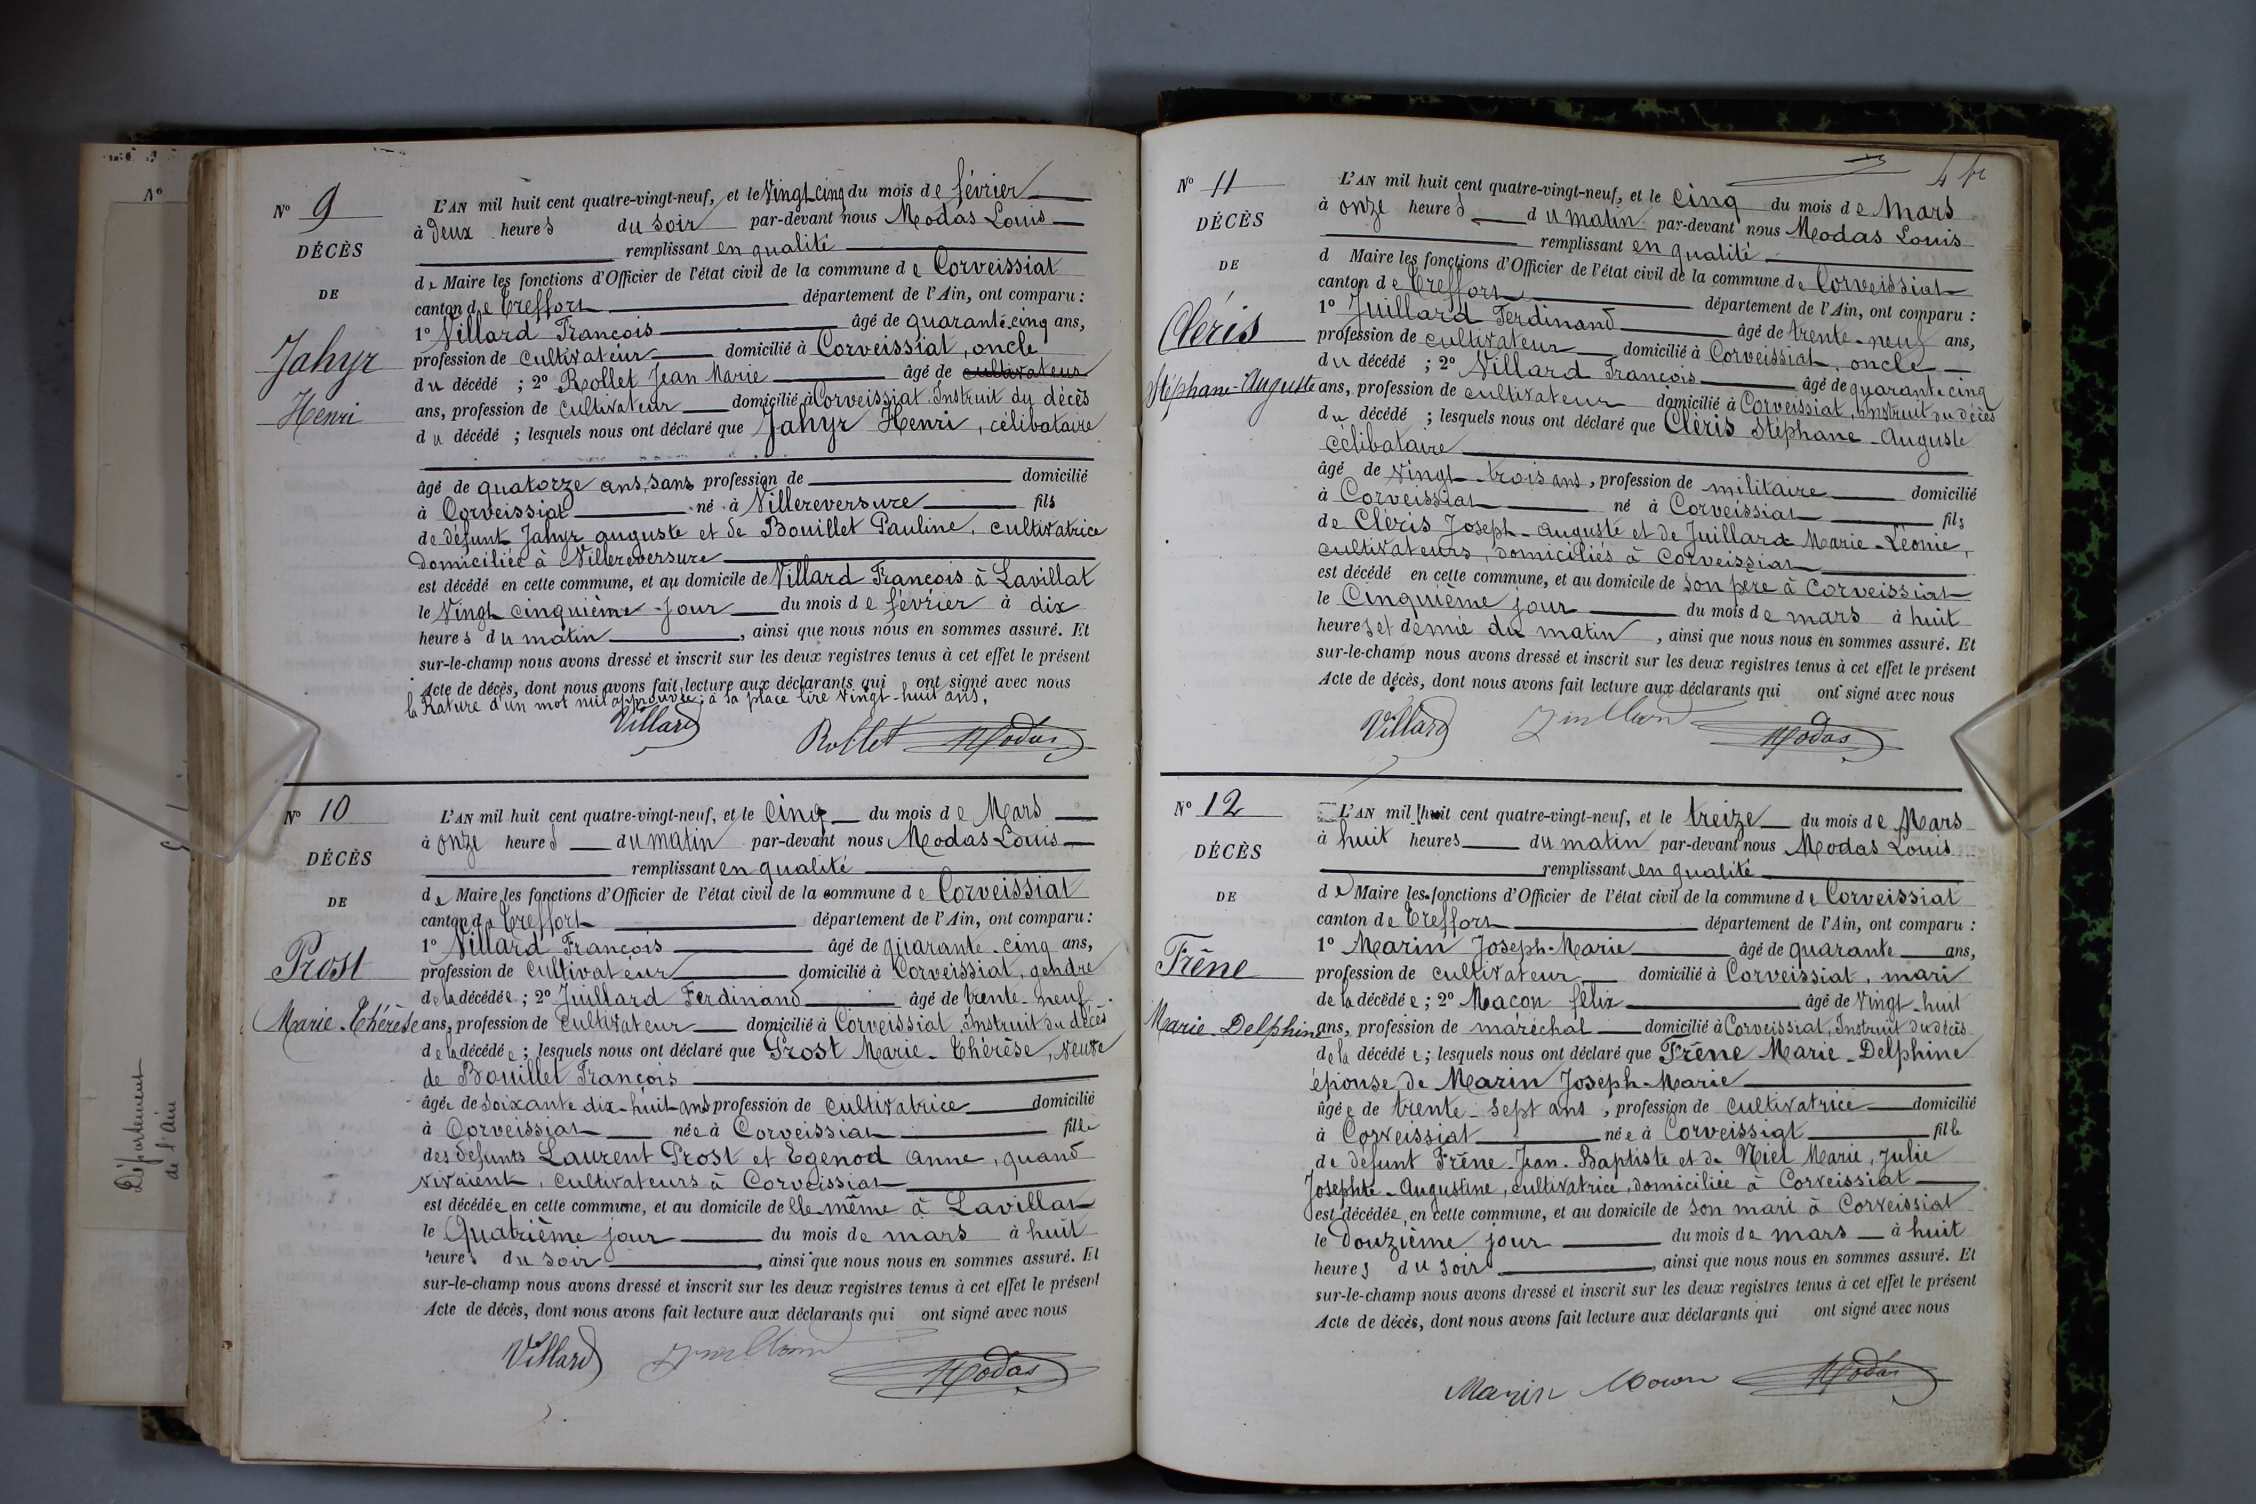 N° 9
DÉCÈS
DE
Jahyr
Henri
L'AN mil huit cent quatre-vingt-neuf, et le Vingt cinq du mois de février
à Deux heures du soir par-devant nous Modas Louis
remplissant en qualité
de Maire les fonctions d'Officier de l'état civil de la commune de Corveissiat
canton de Treffort département de l'Ain, ont comparu :
1° Villard François âgé de quarante-cinq ans,
profession de cultivateur domicilié à Corveissiat, oncle
du décédé ; 2° Rollet Jean Marie âgé de cultivateur
ans, profession de cultivateur domicilié à Corveissiat. Instruit du décès
du décédé ; lesquels nous ont déclaré que Jahyr Henri, célibataire
âgé de quatorze ans, sans profession de domicilié
à Corveissiat né à Villereversure fils
de défunt Jahyr auguste et de Bouillet Pauline, cultivatrice
domiciliée à Villereversure
est décédé en cette commune, et au domicile de Villard François à Lavillat
le Vingt cinquième jour du mois de février à dix
heures du matin, ainsi que nous nous en sommes assuré. Et
sur-le-champ nous avons dressé et inscrit sur les deux registres tenus à cet effet le présent
Acte de décès, dont nous avons fait lecture aux déclarants qui ont signé avec nous
la Rature d'un mot nul approuvée; à sa place lire vingt-huit ans.
Villard Rollet Modas
N° 10
DÉCÈS
DE
Prost
Marie-Thérèse
L'AN mil huit cent quatre-vingt-neuf, et le cinq du mois de Mars
à onze heures du matin par-devant nous Modas Louis
remplissant en qualité
de Maire les fonctions d'Officier de l'état civil de la commune de Corveissiat
canton de Treffort département de l'Ain, ont comparu :
1° Villard François âgé de quarante-cinq ans,
profession de cultivateur domicilié à Corveissiat, gendre
de la décédée ; 2° Juillard Ferdinand âgé de trente-neuf
ans, profession de cultivateur domicilié à Corveissiat, Instruit du décès
de la décédée ; lesquels nous ont déclaré que Prost Marie-Thérèse, veuve
de Bouillet François
âgée de soixante dix-huit ans profession de cultivatrice domicilié
à Corveissiat née à Corveissiat fille
des défunts Laurent Prost et Egenod Anne, quand
vivaient, cultivateurs à Corveissiat
est décédée en cette commune, et au domicile de lle même à Lavillat
le Quatrième jour du mois de mars à huit
heures du soir, ainsi que nous nous en sommes assuré. Et
sur-le-champ nous avons dressé et inscrit sur les deux registres tenus à cet effet le présent
Acte de décès, dont nous avons fait lecture aux déclarants qui ont signé avec nous
Villard Juillard Modas
N° 11
DÉCÈS
DE
Cléris
Stéphane-Auguste
L'AN mil huit cent quatre-vingt-neuf, et le cinq du mois de Mars
à onze heures du matin par-devant nous Modas Louis
remplissant en qualité
d Maire les fonctions d'Officier de l'état civil de la commune de Corveissiat
canton de Treffort département de l'Ain, ont comparu :
1° Juillard Ferdinand âgé de trente-neuf ans,
profession de cultivateur domicilié à Corveissiat, oncle
du décédé ; 2° Villard François âgé de quarante cinq
ans, profession de cultivateur domicilié à Corveissiat, instruit du décès
du décédé ; lesquels nous ont déclaré que Cléris Stéphane-Auguste
célibataire
âgé de vingt-trois ans, profession de militaire domicilié
à Corveissiat né à Corveissiat fils
de Cléris Joseph-Auguste et de Juillard Marie-Léonie,
cultivateurs, domiciliés à Corveissiat
est décédé en cette commune, et au domicile de son père à Corveissiat
le Cinquième jour du mois de mars à huit
heures et demie du matin, ainsi que nous nous en sommes assuré. Et
sur-le-champ nous avons dressé et inscrit sur les deux registres tenus à cet effet le présent
Acte de décès, dont nous avons fait lecture aux déclarants qui ont signé avec nous
Villard Juillard Modas
N° 12
DÉCÈS
DE
Frêne
Marie-Delphine
L'AN mil huit cent quatre-vingt-neuf, et le treize du mois de Mars
à huit heures du matin par-devant nous Modas Louis
remplissant en qualité
de Maire les fonctions d'Officier de l'état civil de la commune de Corveissiat
canton de Treffort département de l'Ain, ont comparu :
1° Marin Joseph-Marie âgé de quarante ans,
profession de cultivateur domicilié à Corveissiat, mari
de la décédée ; 2° Macon félix âgé de vingt-huit
ans, profession de maréchal domicilié à Corveissiat, Instruit du décès
de la décédée ; lesquels nous ont déclaré que Frêne Marie-Delphine
épouse de Marin Joseph-Marie
âgée de trente-sept ans, profession de cultivatrice domicilié
à Corveissiat née à Corveissiat fille
de défunt Frêne Jean-Baptiste et de Niel Marie, Julie
Josephte-Augustine, cultivatrice, domiciliée à Corveissiat
est décédée, en cette commune, et au domicile de son mari à Corveissiat
le Douzième jour du mois de mars à huit
heures du soir, ainsi que nous nous en sommes assuré. Et
sur-le-champ nous avons dressé et inscrit sur les deux registres tenus à cet effet le présent
Acte de décès, dont nous avons fait lecture aux déclarants qui ont signé avec nous
Marin Macon Modas
N°
Département
de l'ain